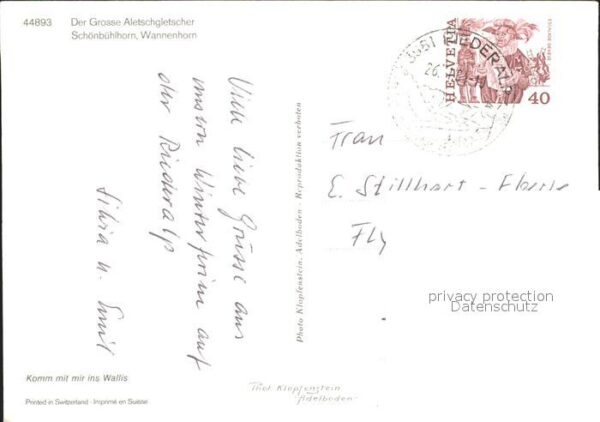 44893 Der Grosse Aletschgletscher
Schönbühlhorn, Wannenhorn
Viele liebe Grüsse aus
auf
der Riederalp
Silvia u. Emil
Komm mit mir ins Wallis
Printed in Switzerland · Imprimé en Suisse
Photo Klopfenstein, Adelboden - Reproduktion verboten
Phot Klopfenstein
Adelboden
RIEDERALP
26.
HELVETIA
40
Frau
E. Stillhart - Eberle
Fly
privacy protection
Datenschutz